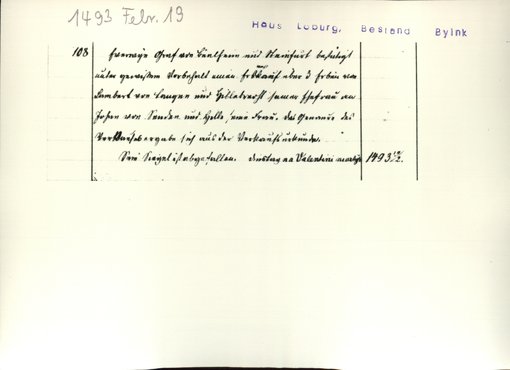 1493 Febr. 19
Haus Loburg, Bestand Byink
103
Everwyn Graf von Bentheim und Steinfurt bestätigt
unter gewissem Vorbehalt einen Erbkauf über 2 Erben von
Lambert von Langen und seiner Ehefrau an
Johan von Senden und seine Frau. Das Genauere des
Verkaufes ergebe sich aus der Verkaufsurkunde.
Sein Siegel ist abgefallen. dinstag na Valentini 1493 19/2.